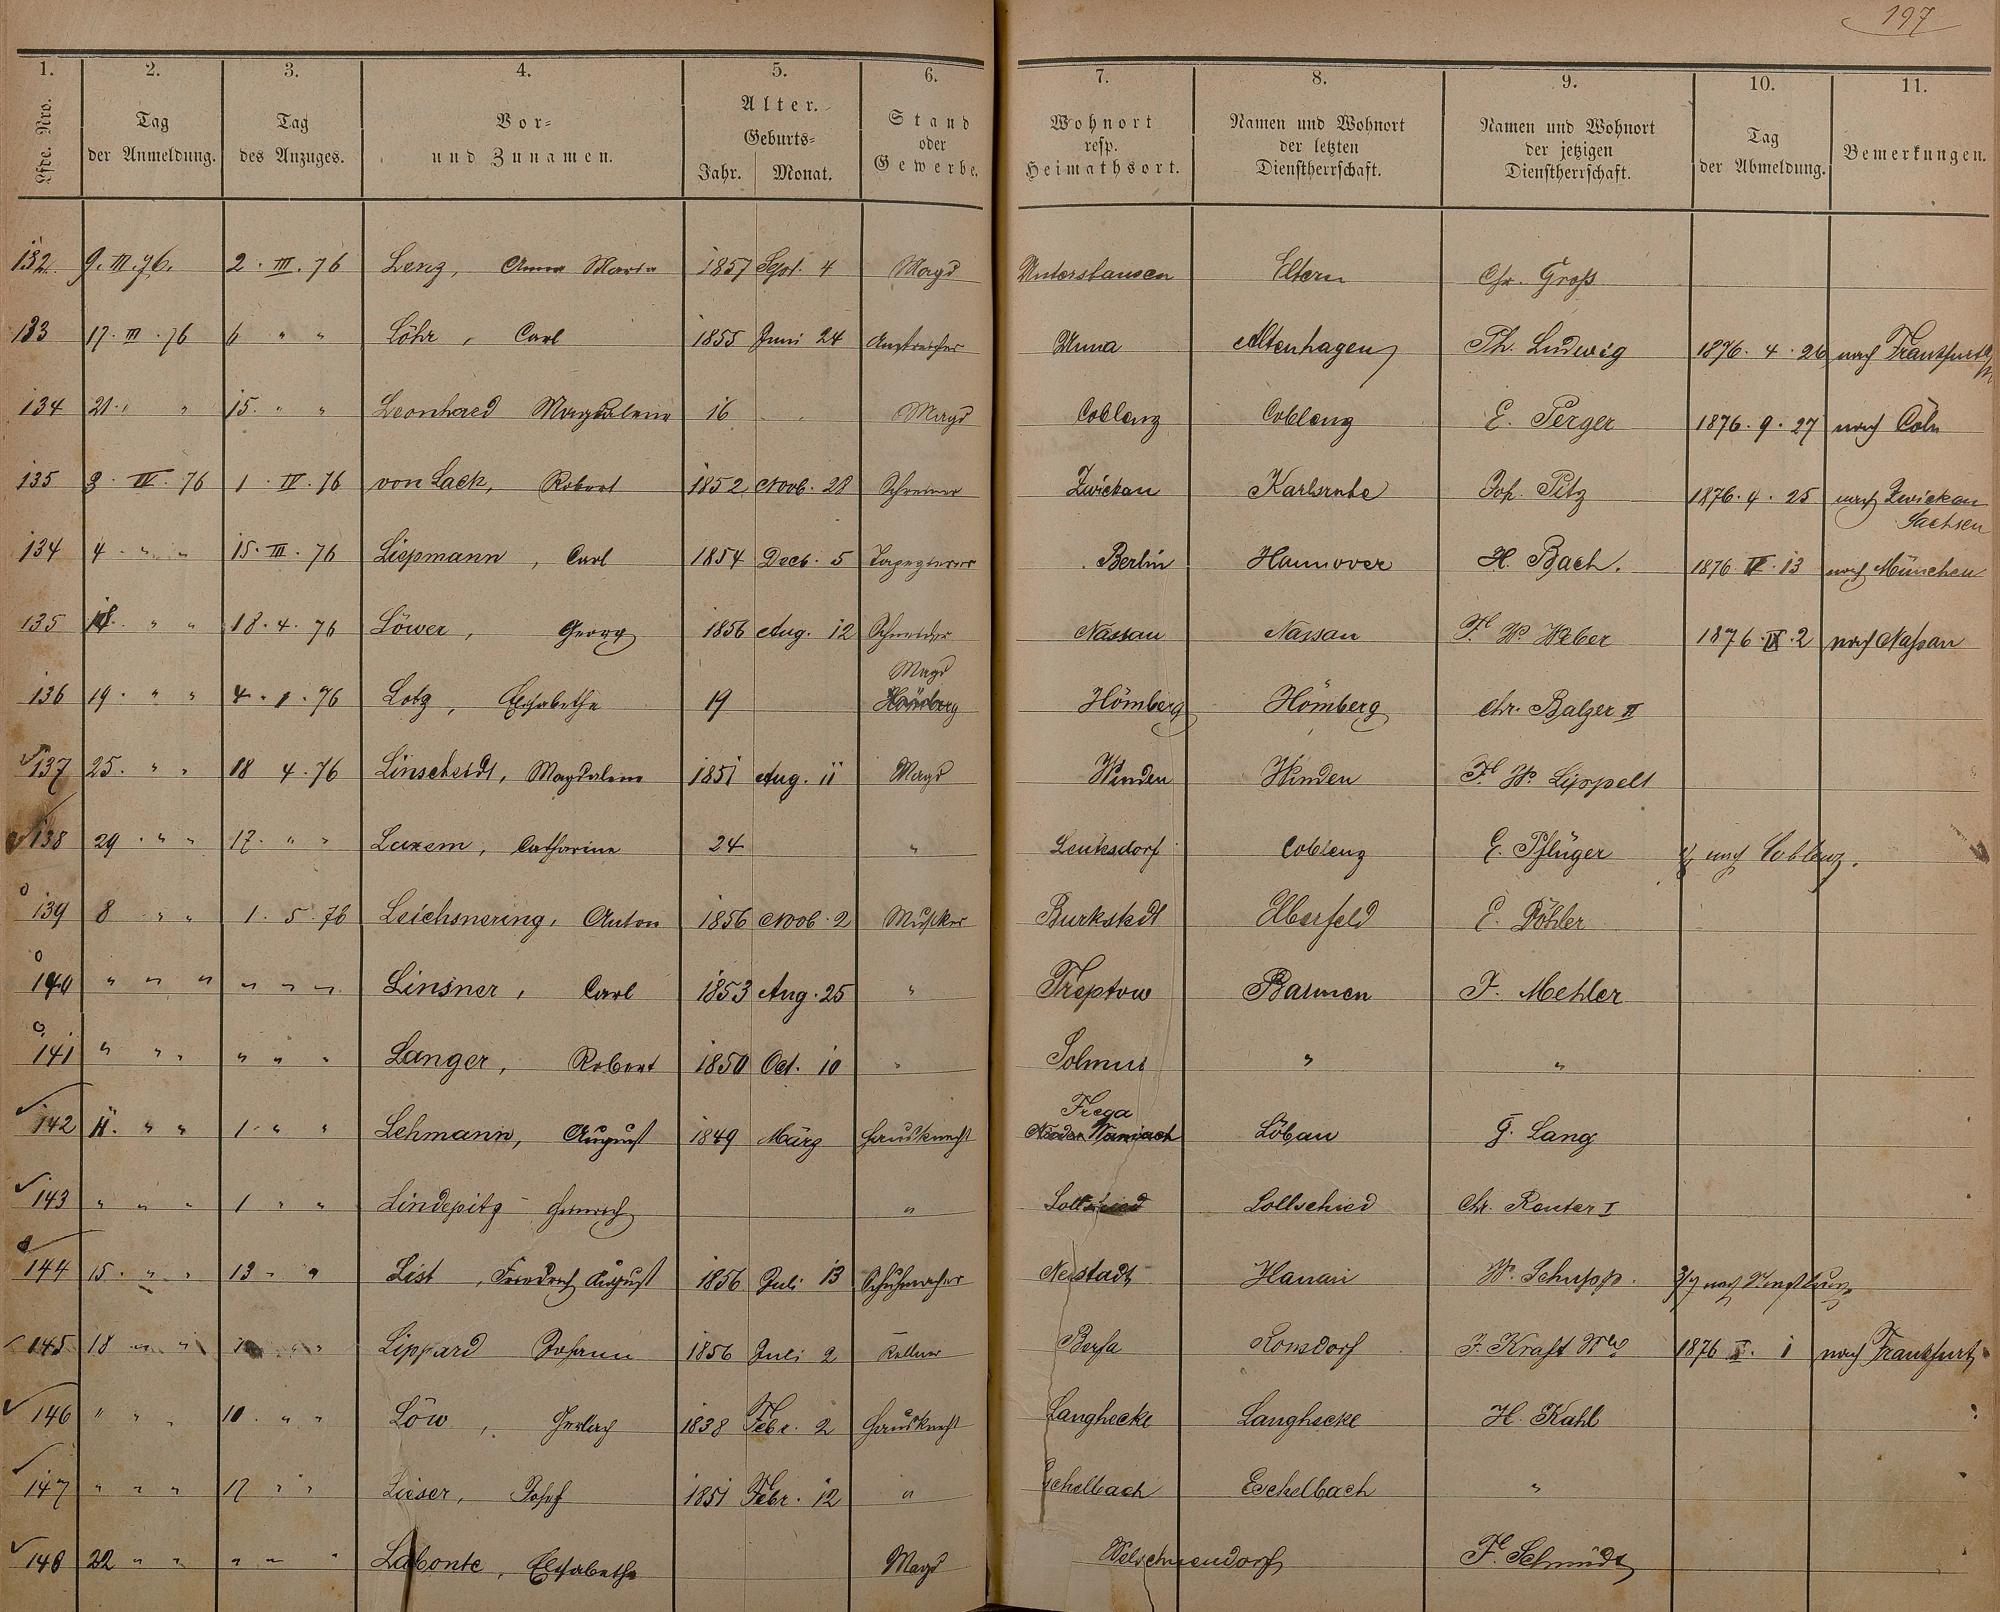 197
1. 2. 3. 4. 5. 6. 7. 8. 9. 10. 11.
Lfde. Nro. | Tag der Anmeldung. | Tag des Anzuges. | Vor- und Zunamen. | Alter. Geburts- Jahr. Monat. | Stand oder Gewerbe. | Wohnort resp. Heimathsort. | Namen und Wohnort der letzten Dienstherrschaft. | Namen und Wohnort der jetzigen Dienstherrschaft. | Tag der Abmeldung. | Bemerkungen.
132 9. III. 76. 2. III. 76 Lenz, Anna Maria 1857 Sept. 4 Magd Untershausen Eltern Chr. Groß
133 17. III. 76 6 " " Löhr, Carl 1855 Juni 24 Anstreicher Unna Altenhagen Ph. Ludwig 1876. 4. 26 nach Frankfurt a/M
134 21. " " 15. " " Leonhard Magdalena 16 Magd Coblenz Coblenz E. Perger 1876. 9. 27 nach Cöln
135 3. IV. 76 1. IV. 76 von Lack, Robert 1852 Novb. 28 Schreiner Zwickau Karlsruhe Joh. Pitz 1876. 4. 25 nach Zwickau
Sachsen
134 4. " " 15. III. 76 Liepmann, Carl 1854 Decb. 5 Tapezierer Berlin Hannover H. Bach. 1876 IV. 13 nach München
135 18. " " 18. 4. 76 Löwer, Georg 1856 Aug. 12 Schneider Nassau Nassau Fr. W. Weber 1876. IX. 2 nach Nassau
Magd
136 19. " " 4. 1. 76 Lotz, Elisabethe 19 Hömberg Hömberg Hömberg Chr. Balzer II
137 25. " " 18 4. 76 Linscheidt, Magdalena 1851 Aug. 11 Magd Winden Winden Fr. W. Lippelt
138 29 " " 17. " " Luxem, Catharine 24 " Leutesdorf Coblenz E. Pflüger nach Coblenz.
139 8 " " 1. 5. 76 Leichsnering, Anton 1856 Novb. 2 Musiker Burkstedt Elberfeld E. Döhler
140 " " " " " " Linsner, Carl 1853 Aug. 25 " Treptow Barmen F. Mehler
141 " " " " " " Langer, Robert 1850 Oct. 10 " " "
Frega
142 11. " " 1. " " Lehmann, August 1849 März Hausknecht Löbau G. Lang
143 " " " 1 " " Lindepitz Heinrich " Lollschied Lollschied Chr. Rauter I
144 15. " " 13 " " List, Friedrich August 1856 Juli 13 Schuhmacher Neistadt Hanau W. Schupp. 3/9 nach
145 18 " " Lippard Johann 1856 Juli 2 Kellner Berfa Ronsdorf F. Kraft Wwe 1876 X. 1 nach Frankfurt
146 " " " 10. " " Löw, Gerlach 1838 Febr. 2 Hausknecht Langhecke Langhecke H. Kahl
147 " " " 17 " " Lieser, Josef 1851 Febr. 12 " Eschelbach Eschelbach "
148 22 " " " " " Labonte, Elisabethe Magd Welschneudorf Fr. Schmidt